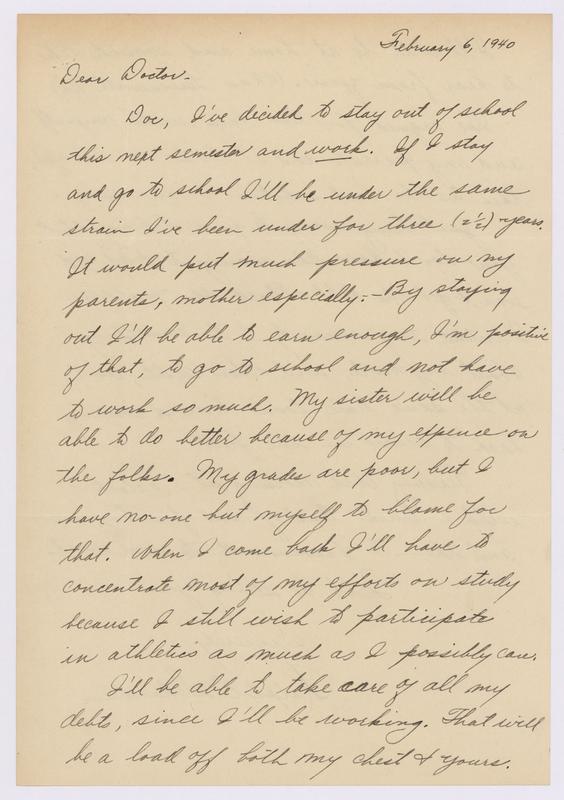 February 6, 1940
Dear Doctor-
Doc, I've decided to stay out of school
this next semester and work. If I stay
and go to school I'll be under the same
strain I've been under for three (2½) years.
It would put much pressure on my
parents, mother especially:- By staying
out I'll be able to earn enough, I'm positive
of that, to go to school and not have
to work so much. My sister will be
able to do better because of my expence on
the folks. My grades are poor, but I
have no-one but myself to blame for
that. When I come back I'll have to
concentrate most of my efforts on study
because I still wish to participate
in athletics as much as I possibly can.
I'll be able to take care of all my
debts, since I'll be working. That will
be a load off both my chest & yours.